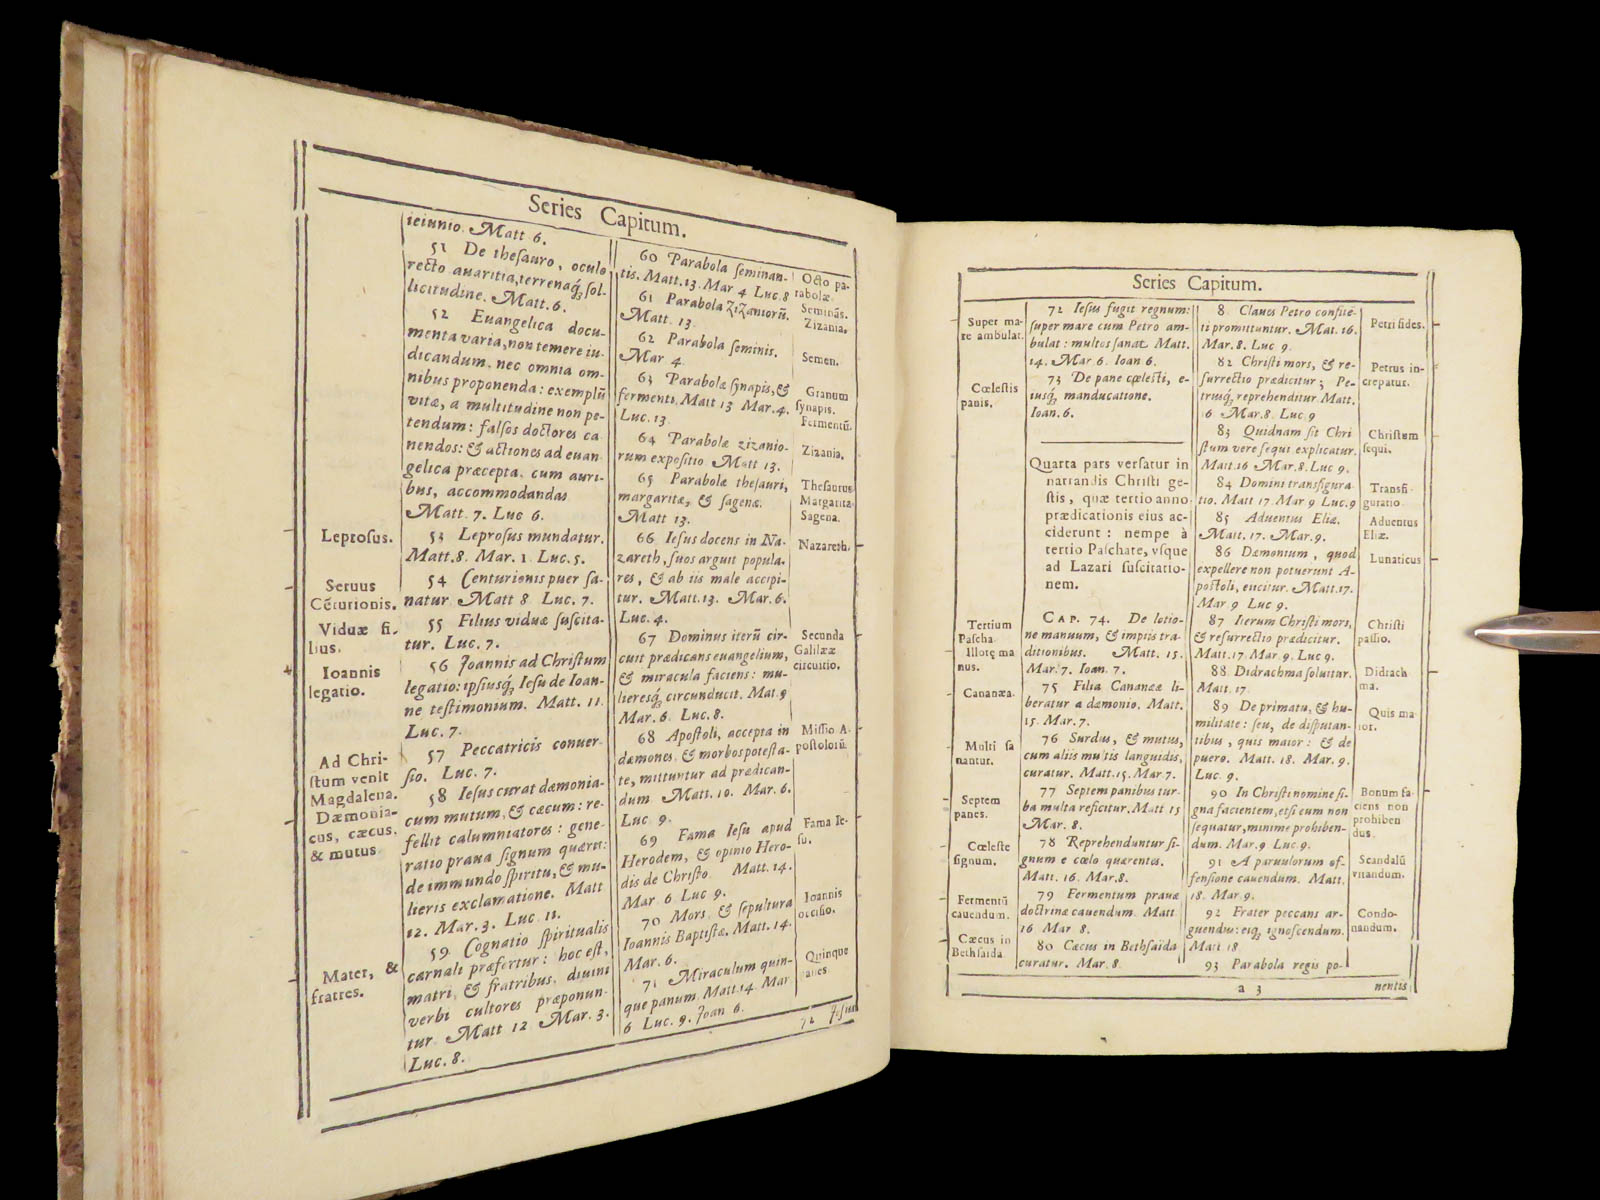 Series Capitum.
ieiunio. Matt 6.
51 De theſauro, oculo
recto auaritia, terrenaq; ſol-
licitudine. Matt. 6.
52 Euangelica docu-
menta varia, non temere iu-
dicandum, nec omnia om-
nibus proponenda: exemplũ
vitæ, a multitudine non pe-
tendum: falſos doctores ca
nendos: & actiones ad euan-
gelica præcepta, cum auri-
bus, accommodandas
Matt. 7. Luc 6.
Leproſus.
53 Leproſus mundatur.
Matt. 8. Mar. 1. Luc. 5.
Seruus
Cẽturionis.
54 Centurionis puer ſa-
natur Matt 8 Luc. 7.
Viduæ fi-
lius.
55 Filius viduæ ſuſcita-
tur. Luc. 7.
Ioannis
legatio.
56 Joannis ad Chriſtum
legatio: ipſiusq; Ieſu de Ioan-
ne teſtimonium. Matt. 11
Luc. 7.
Ad Chri-
ſtum venit
Magdalena.
57 Peccatricis conuer-
ſio. Luc. 7.
Dæmonia-
cus, cæcus,
& mutus
58 Ieſus curat dæmonia-
cum mutum, & cæcum: re-
fellit calumniatores: gene-
ratio praua ſignum quærit:
de immundo ſpiritu, & mu-
lieris exclamatione. Matt
12. Mar. 3. Luc. 11.
Mater, &
fratres.
59 Cognatio ſpiritualis
carnali præfertur: hoc eſt,
matri, & fratribus, diuini
verbi cultores præponun-
tur. Matt 12 Mar. 3.
Luc. 8.
60 Parabola ſeminan-
tis. Matt. 13. Mar 4 Luc. 8
Octo pa-
rabolæ.
Seminãs.
61 Parabola ZiZaniorũ.
Matt. 13.
Zizania.
62 Parabola ſeminis.
Mar 4.
Semen.
63 Parabolæ ſynapis, &
fermenti. Matt 13 Mar. 4.
Luc. 13.
Granum
ſynapis.
Fermentũ.
64 Parabolæ zizanio-
rum expoſitio Matt 13.
Zizania.
65 Parabolæ theſauri,
margaritæ, & ſagenæ.
Matt 13.
Theſaurus
Margarita
Sagena.
66 Ieſus docens in Na-
zareth, ſuos arguit popula-
res, & ab iis male accipi-
tur. Matt. 13. Mar. 6.
Luc. 4.
Nazareth.
67 Dominus iterũ cir-
cuit prædicans euangelium,
& miracula faciens: mu-
lieresq; circunducit. Mat. 9
Mar. 6. Luc. 8.
Secunda
Galilææ
circuitio.
68 Apoſtoli, accepta in
dæmones, & morbos poteſta-
te, mittuntur ad prædican-
dum Matt. 10. Mar. 6.
Luc 9.
Miſſio A-
poſtolorũ.
69 Fama Ieſu apud
Herodem, & opinio Hero-
dis de Chriſto. Matt. 14.
Mar 6 Luc 9.
Fama Ie-
ſu.
70 Mors, & ſepultura
Ioannis Baptiſtæ. Matt. 14.
Mar. 6.
Ioannis
occiſio.
71 Miraculum quin-
que panum. Matt. 14. Mar
6 Luc. 9. Joan 6.
Quinque
panes
72 Jeſus
Series Capitum.
Super ma-
re ambulat.
72 Ieſus fugit regnum:
ſuper mare cum Petro am-
bulat: multos ſanat. Matt.
14. Mar 6. Ioan 6.
Cœleſtis
panis.
73 De pane cœleſti, e-
iusq; manducatione.
Ioan. 6.
Quarta pars verſatur in
narrandis Chriſti ge-
ſtis, quæ tertio anno
prædicationis eius ac-
ciderunt: nempe à
tertio Paſchate, vſque
ad Lazari ſuſcitatio-
nem.
Tertium
Paſcha
Illotę ma
nus.
CAP. 74. De lotio-
ne manuum, & impiis tra-
ditionibus. Matt. 15.
Mar. 7. Ioan. 7.
Cananæa.
75 Filia Cananææ li-
beratur a dæmonio. Matt.
15. Mar. 7.
Multi ſa
nantur.
76 Surdus, & mutus,
cum aliis multis languidis,
curatur. Matt. 15. Mar. 7.
Septem
panes.
77 Septem panibus tur-
ba multa reficitur. Matt 15
Mar. 8.
Cœleſte
ſignum.
78 Reprehenduntur ſi-
gnum e cœlo quærentes.
Matt. 16. Mar. 8.
Fermentũ
cauendum.
79 Fermentum prauæ
doctrinæ cauendum. Matt
16 Mar 8.
Cæcus in
Bethſaida.
80 Cæcus in Bethſaida
curatur. Mar. 8.
8. Claues Petro confitē-
ti promittuntur. Mat. 16.
Mar. 8. Luc 9.
Petri fides.
82 Chriſti mors, & re-
ſurrectio prædicitur; Pe-
trusq; reprehenditur Matt.
6 Mar. 8. Luc 9
Petrus in-
crepatur.
83 Quidnam ſit Chri
ſtum vere ſequi explicatur.
Matt. 16 Mar. 8. Luc 9.
Chriſtum
ſequi.
84 Domini transfigura
tio. Matt 17. Mar 9 Luc. 9
Transfi-
guratio
85 Aduentus Eliæ.
Matt. 17. Mar. 9.
Aduentus
Eliæ.
86 Dæmonium, quod
expellere non potuerunt A-
poſtoli, eiicitur. Matt. 17.
Mar 9 Luc 9.
Lunaticus
87 Iterum Chriſti mors,
& reſurrectio prædicitur.
Matt. 17 Mar. 9. Luc 9.
Chriſti
paſſio.
88 Didrachma ſoluitur.
Matt. 17
Didrach
ma.
89 De primatu, & hu-
militate: ſeu, de diſputan-
tibus, quis maior: & de
puero. Matt. 18. Mar. 9.
Luc 9.
Quis ma
ior.
90 In Chriſti nomine ſi-
gna facientem, etſi eum non
ſequatur, minime prohiben-
dum. Mar. 9 Luc 9.
Bonum fa
ciens non
prohiben
dus.
91 A paruulorum of-
fenſione cauendum. Matt.
18. Mar 9.
Scandalũ
vitandum.
92 Frater peccans ar-
guendus: eiq; ignoſcendum.
Matt 18
Condo-
nandum.
93 Parabola regis po-
a 3
nentis